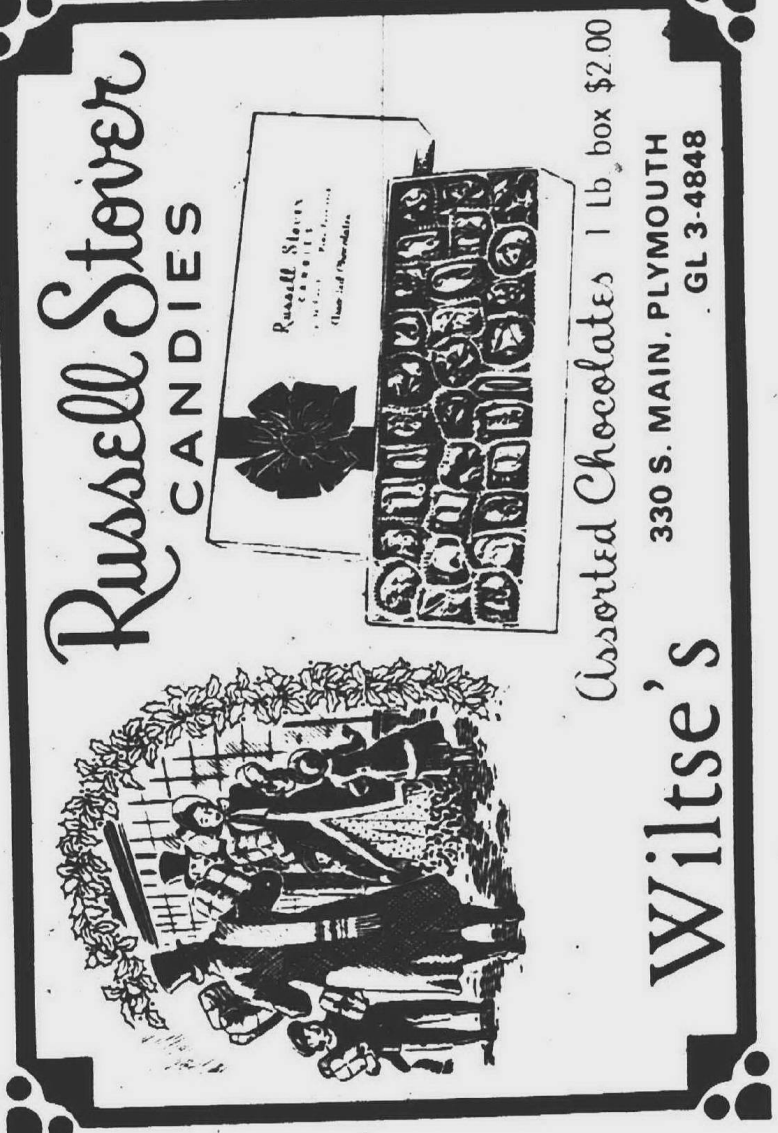 Russell Stover
CANDIES
Russell Stover
CANDIES
Assorted Chocolates
Assorted Chocolates 1 Lb. box $2.00
Wiltse's
330 S. MAIN, PLYMOUTH
GL 3-4848